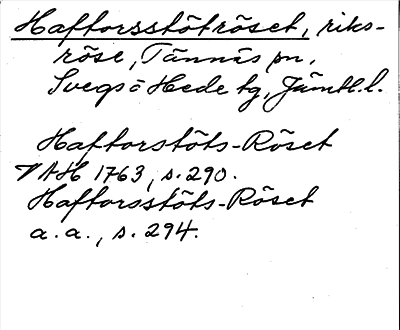 Haftorsstötröset, riks-
röse, Tännäs sn,
Svegs o Hede tg, Jämtl. l.
Haftorstöts-Röset
VAH 1763, s. 290.
Haftorsstöts-Röset
a. a., s. 294.